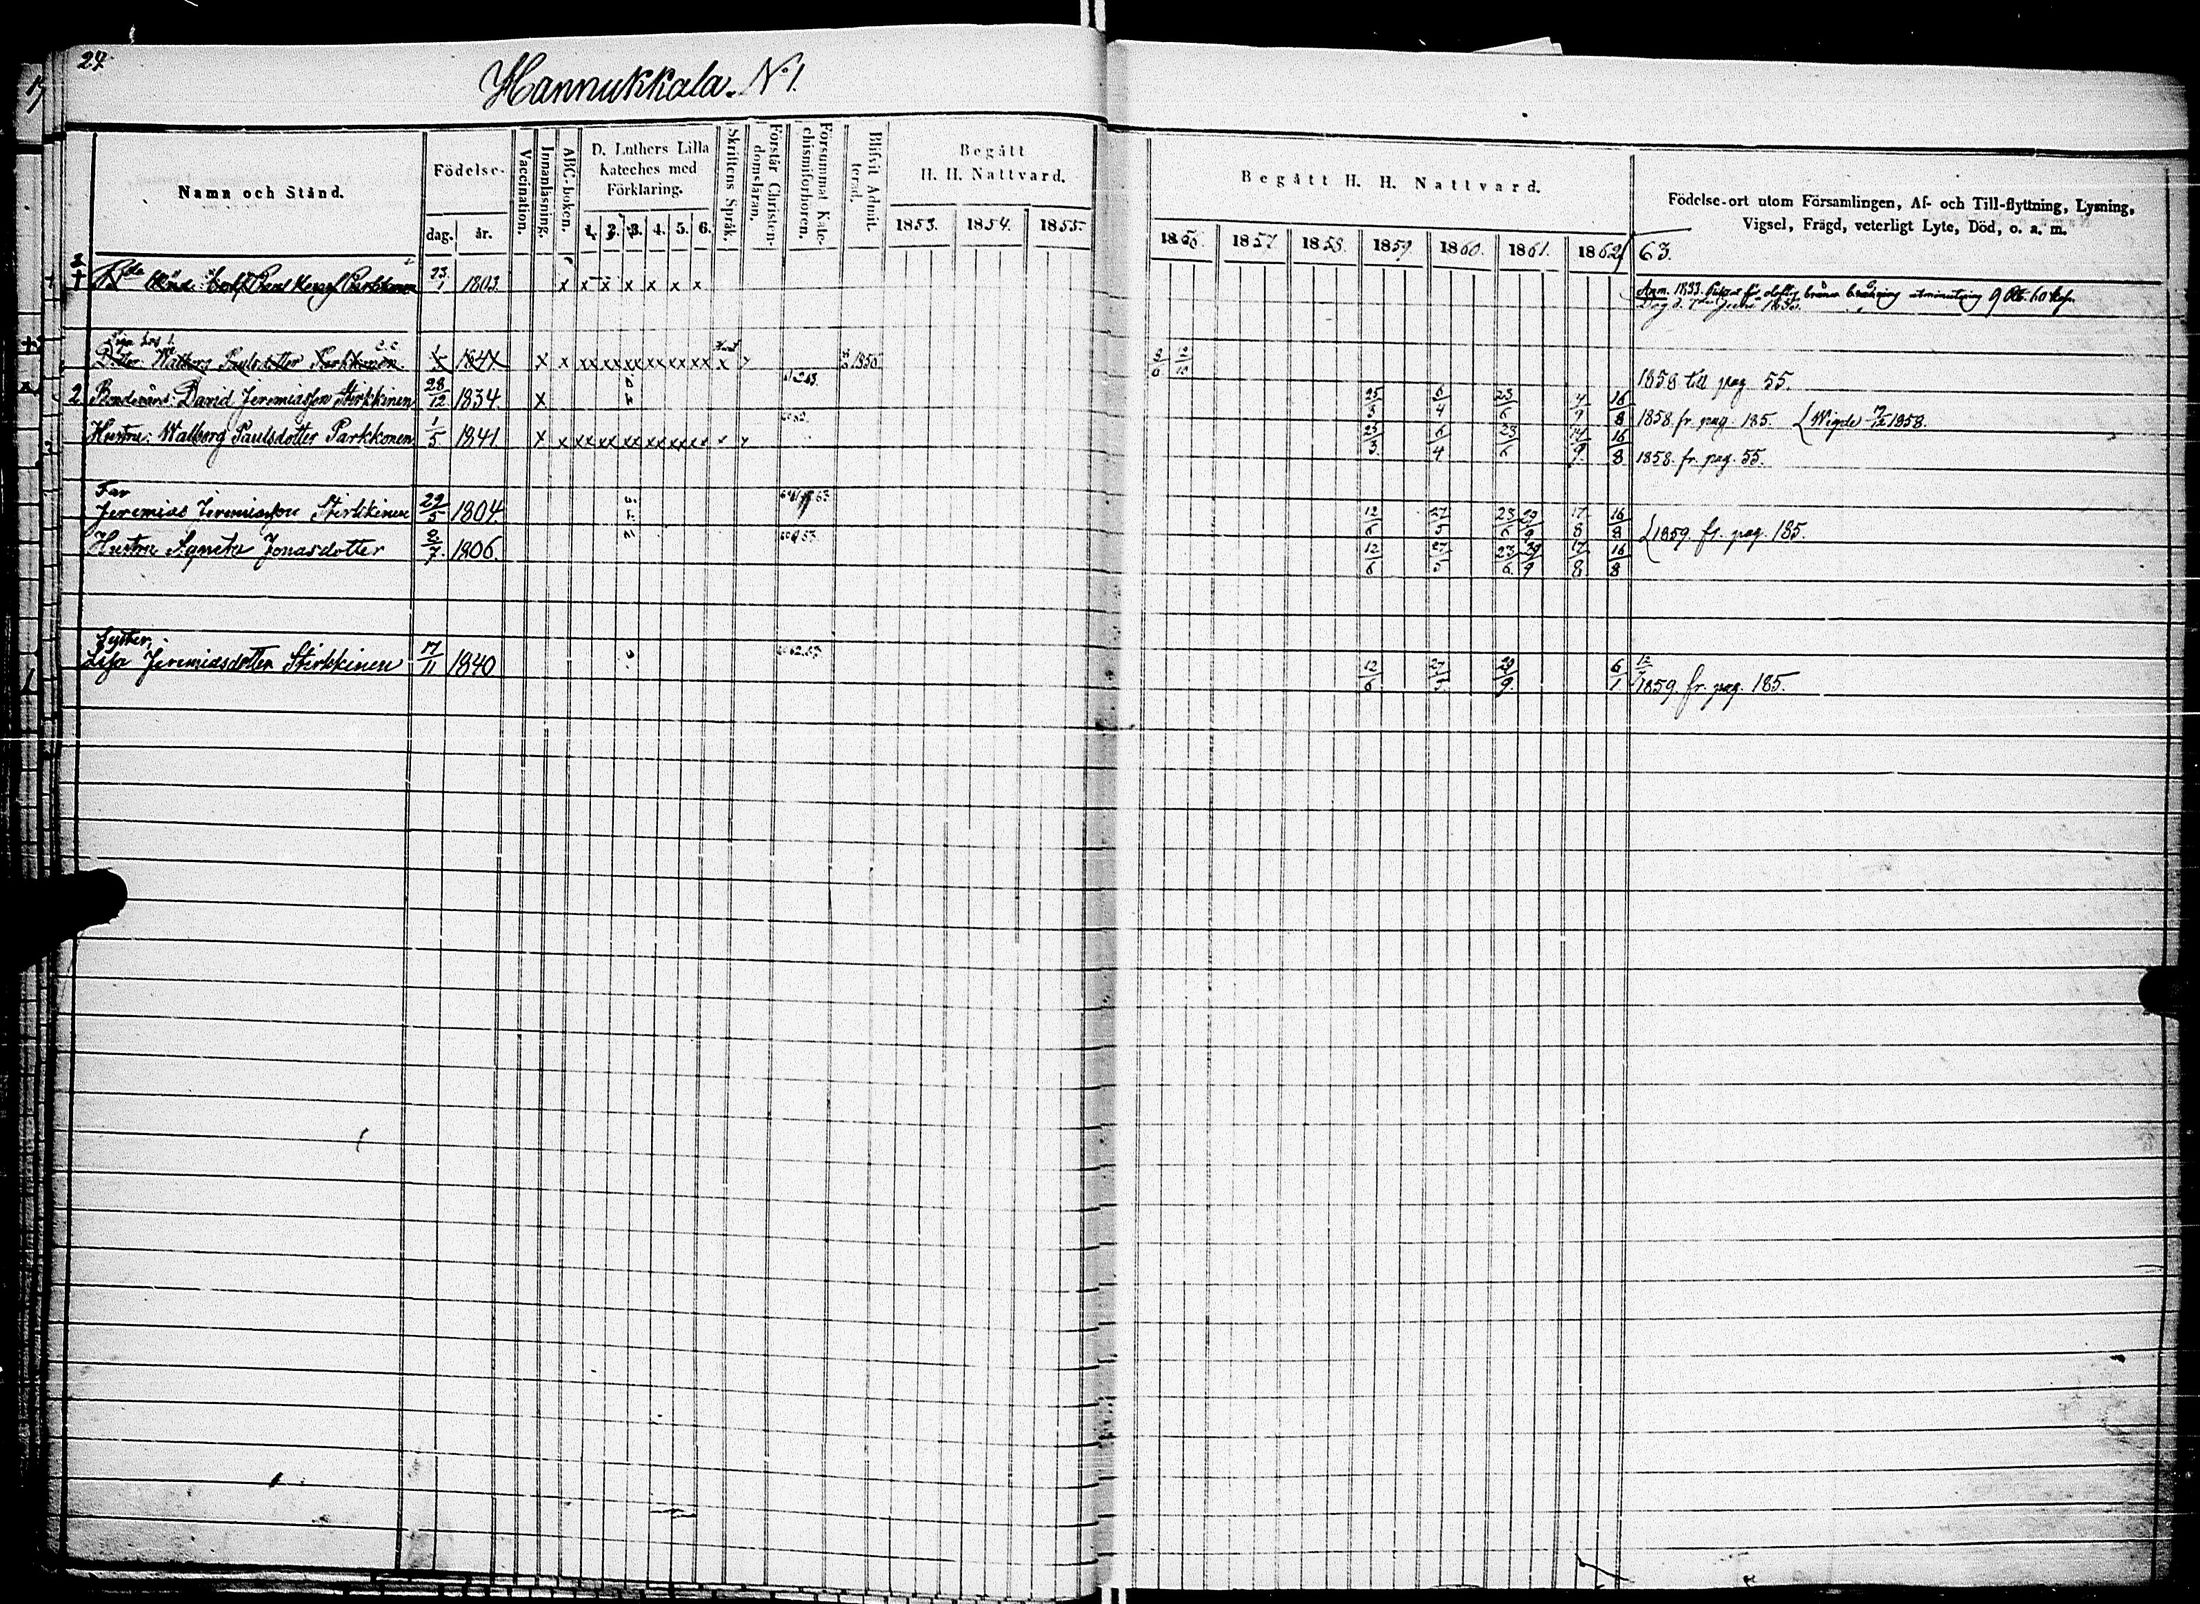 24.
Hannukkala. N:1.
Namn och Stånd.
Födelse-
dag. år.
Vaccination.
Innanläsning.
ABC-boken.
D. Luthers Lilla
Kateches med
Förklaring.
1. 2. 3. 4. 5. 6.
Skriftens Språk.
Förstår Christen-
domsläran.
Försummat Kate-
chismiförhören.
Blifvit Admit-
terad.
Begått
H. H. Nattvard.
1853. 1854. 1855.
Begått H. H. Nattvard.
1856. 1857. 1858. 1859. 1860. 1861. 1862/63.
Födelse-ort utom Församlingen, Af- och Till-flyttning, Lysning,
Vigsel, Frägd, veterligt Lyte, Död, o. a. m.
Paul Parkkonen 23/1 1803. x x x x x x x
Anm. 1833. för olaflig 9 Rb. 60 Kop.
Dotter Walborg Paulsdotter Parkkonen 1841 x x xx xx xx xx xx xx x 1855
1858 till pag 55.
2 Bonde David Jeremiasson Stirkkinen 28/12 1834. x 25/3 6/4 23/6 4/9 16/8 1858. fr. pag. 185. Wigde 1858.
Hustru: Walborg Paulsdotter Parkkonen 1/5 1841. x x xx xx xx xx xx xx 25/3 6/4 23/6 14/9 16/8 1858. fr. pag. 55.
Far
Jeremias Jeremiasson Stirkkinen 29/5 1804. 12/6 27/5 23/6 29/9 17/8 16/8
1859. fr. pag. 185.
Hustru Agneta Jonasdotter 2/7 1806. 12/6 27/5 23/6 29/9 17/8 16/8
Syster,
Lisa Jeremiasdotter Stirkkinen 17/11 1840 12/6 27/5 29/9 6/1 1859. fr. pag. 185.